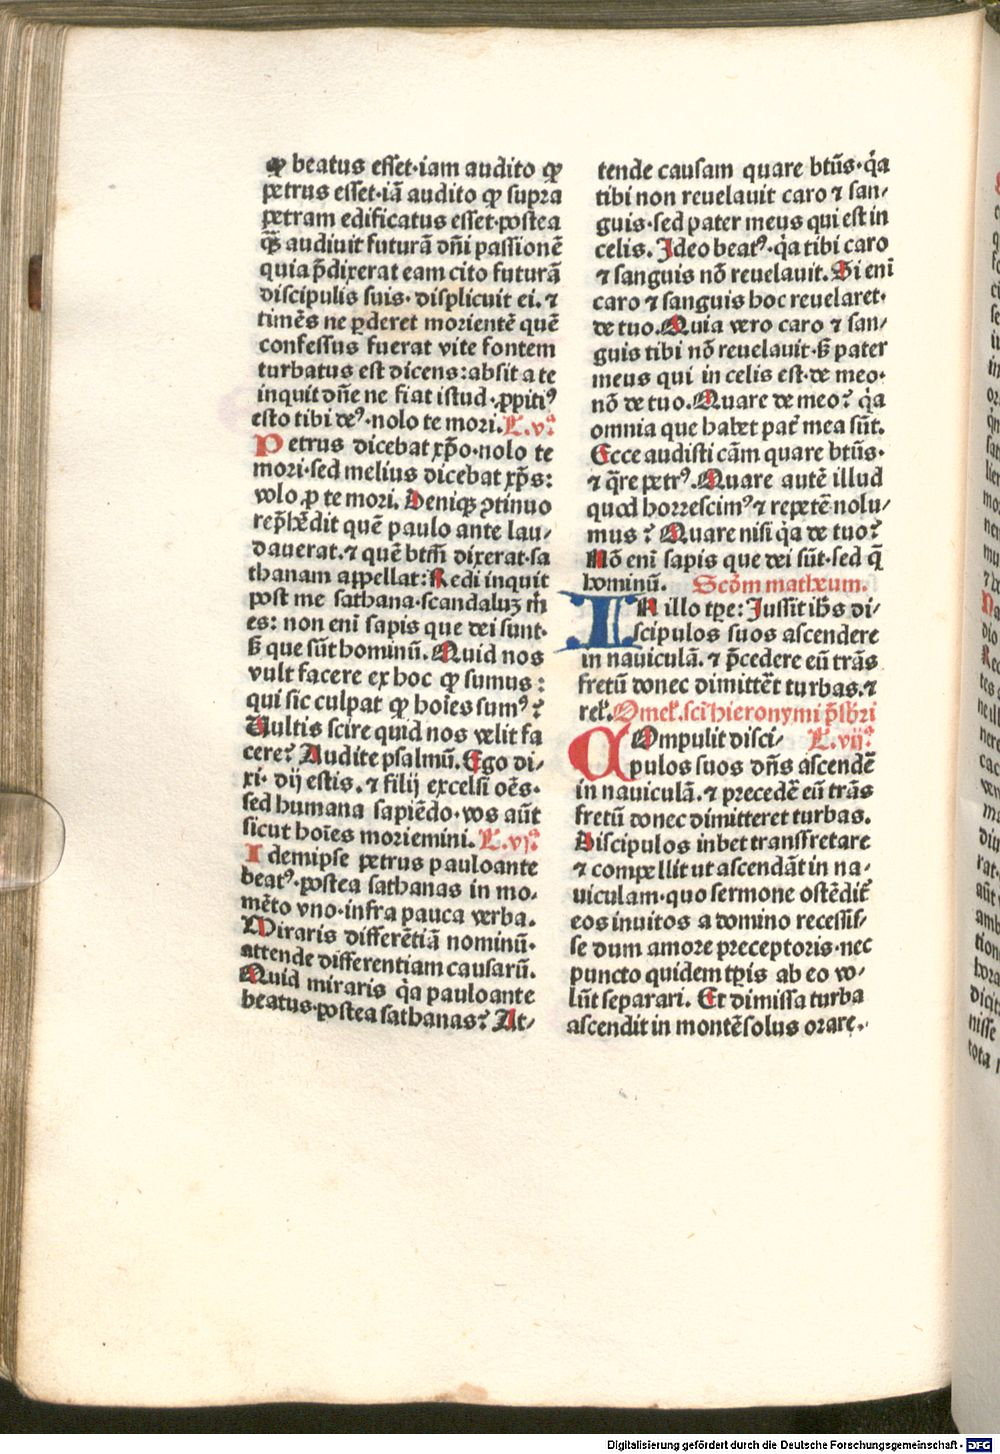 ꝙ beatus esset·iam audito ꝙ
petrus esset·iā audito ꝙ supra
petram edificatus esset·postea
q̄ꝫ audiuit futurā dn̄i passionē
quia p̄dixerat eam cito futurā
discipulis suis· displicuit ei. ⁊
timēs ne ꝑderet morientē quē
confessus fuerat vite fontem
turbatus est dicens: absit a te
inquit dn̄e ne fiat istud·ꝓpiti⁹
esto tibi de⁹·nolo te mori. L. vᵃ
Petrus dicebat xp̄o·nolo te
mori·sed melius dicebat xp̄s:
volo ꝓ te mori. Deniqꝫ ꝯtinuo
rep̄hēdit quē paulo ante lau/
dauerat.⁊ quē btm̄ dixerat·sa
thanam appellat: Redi inquit
post me sathana·scandaluꝫ m̄
es: non eni sapis que dei sunt·
ß que sūt hominū. Quid nos
vult facere ex hoc ꝙ sumus:
qui sic culpat ꝙ hoīes sum⁹?
Uultis scire quid nos velit fa
cere? Audite psalmū. Ego di/
xi· dij estis. ⁊ filij excelsi oēs·
sed humana sapiēdo·vos aūt
sicut hoīes moriemini. L. vjᵃ
Idemipse petrus pauloante
beat⁹·postea sathanas in mo·
mēto vno·infra pauca verba.
Miraris differētiā nominū·
attende differentiam causarū.
Quid miraris q̇a pauloante
beatus·postea sathanas? At/
tende causam quare btūs·q̇a
tibi non reuelauit caro ⁊ san/
guis·sed pater meus qui est in
celis. Ideo beat⁹·q̇a tibi caro
⁊ sanguis nō reuelauit. Si eni
caro ⁊ sanguis hoc reuelaret·
de tuo. Quia vero caro ⁊ san/
guis tibi nō reuelauit·ß pater
meus qui in celis est·de meo·
nō de tuo. Quare de meo? q̇a
omnia que habet pat̄ mea sūt.
Ecce audisti cām quare btūs·
⁊ q̄re petr⁹. Quare autē illud
quod horrescim⁹ ⁊ repetē nolu/
mus? Quare nisi q̇a de tuo?
Nō eni sapis que dei sūt·sed q̄
hominū. Scd̄m matheum.
IN illo tp̄e: Jussit ih̄s di/
scipulos suos ascendere
in nauiculā. ⁊ p̄cedere eū trās
fretū donec dimittēt turbas.⁊
rel̄. Omel̄.sci hieronymi p̄sbri
COmpulit disci/ L. vijᵃ
pulos suos dn̄s ascendē
in nauiculā.⁊ precedē eū trās
fretū donec dimitteret turbas.
Discipulos iubet transfretare
⁊ compellit ut ascendāt in na·
uiculam·quo sermone ostēdit̄
eos inuitos a domino recessis/
se dum amore preceptoris·nec
puncto quidem tp̄is ab eo vo/
lūt separari. Et dimissa turba
ascendit in montē solus orare.·
Digitalisierung gefördert durch die Deutsche Forschungsgemeinschaft - DFG